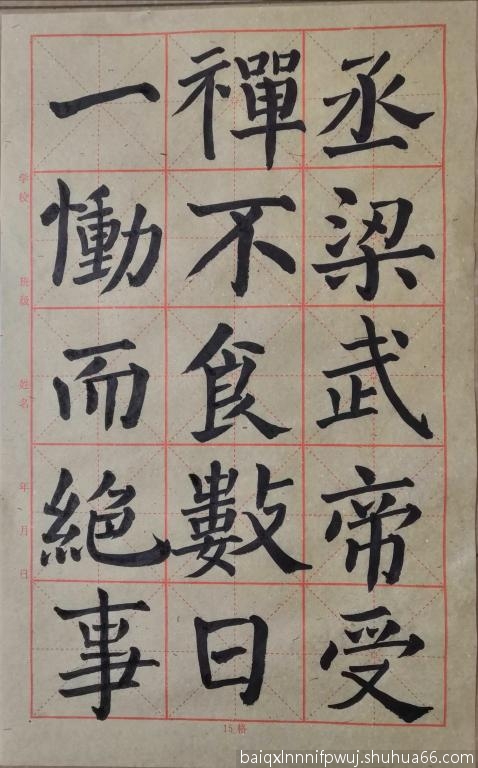 丞梁武帝受
禪不食數日
一慟而絕事
学校
班级
姓名
年月日
15格
baiqxlnnnifpwuj.shuhua66.com